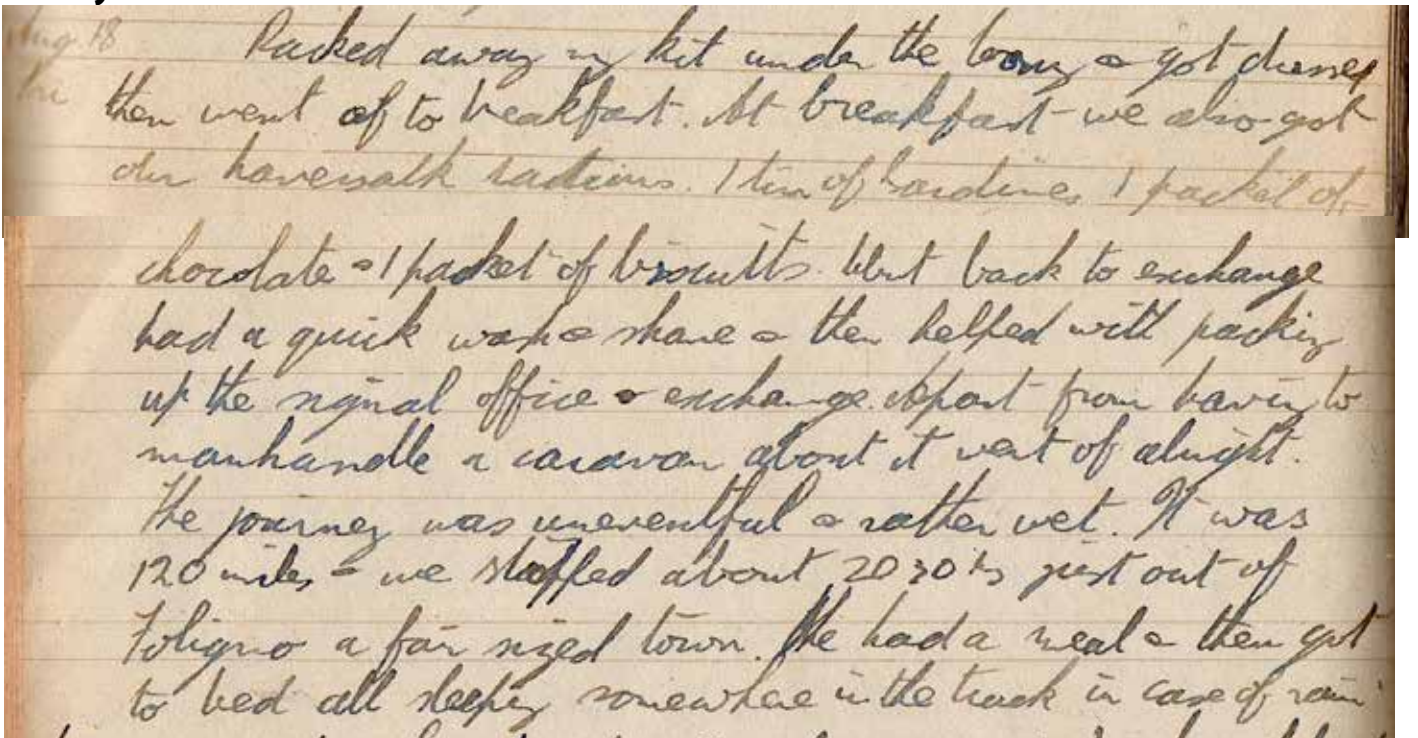 Aug. 18 Packed away my kit under the & got dressed
Fri then went of to breakfast. At breakfast we also got
our haversalk rations. 1 tin of Sardines 1 packet of
chocolate & 1 packet of biscuitts. Went back to exchange
had a quick wash & shave & then helped with packing
up the signal office & exchange. Apart from having to
manhandle a caravan about it went of alright.
The journey was uneventful & rather wet. It was
120 miles & we stopped about 2030 hrs just out of
Foligno a fair sized town. We had a meal & then got
to bed all sleeping somewhere in the truck in case of rain